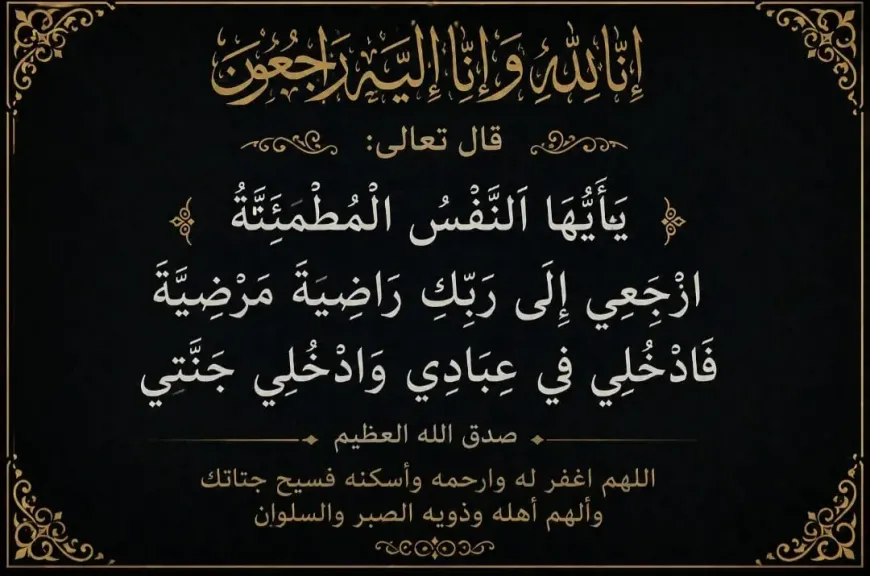 إِنَّا لِلّٰهِ وَإِنَّا إِلَيْهِ رَاجِعُونَ
قال تعالى:
يَأَيُّهَا اَلنَّفْسُ الْمُطْمَئِنَّةُ
ازْجَعِي إِلَى رَبِّكِ رَاضِيَةَ مَرْضِيَّةَ
فَادْخُلِي في عِبَادِي وَادْخُلِي جَنَّتِي
صدق الله العظيم
اللهم اغفر له وارحمه وأسكنه فسيح جتاتك
وألهم أهله وذويه الصبر والسلوان